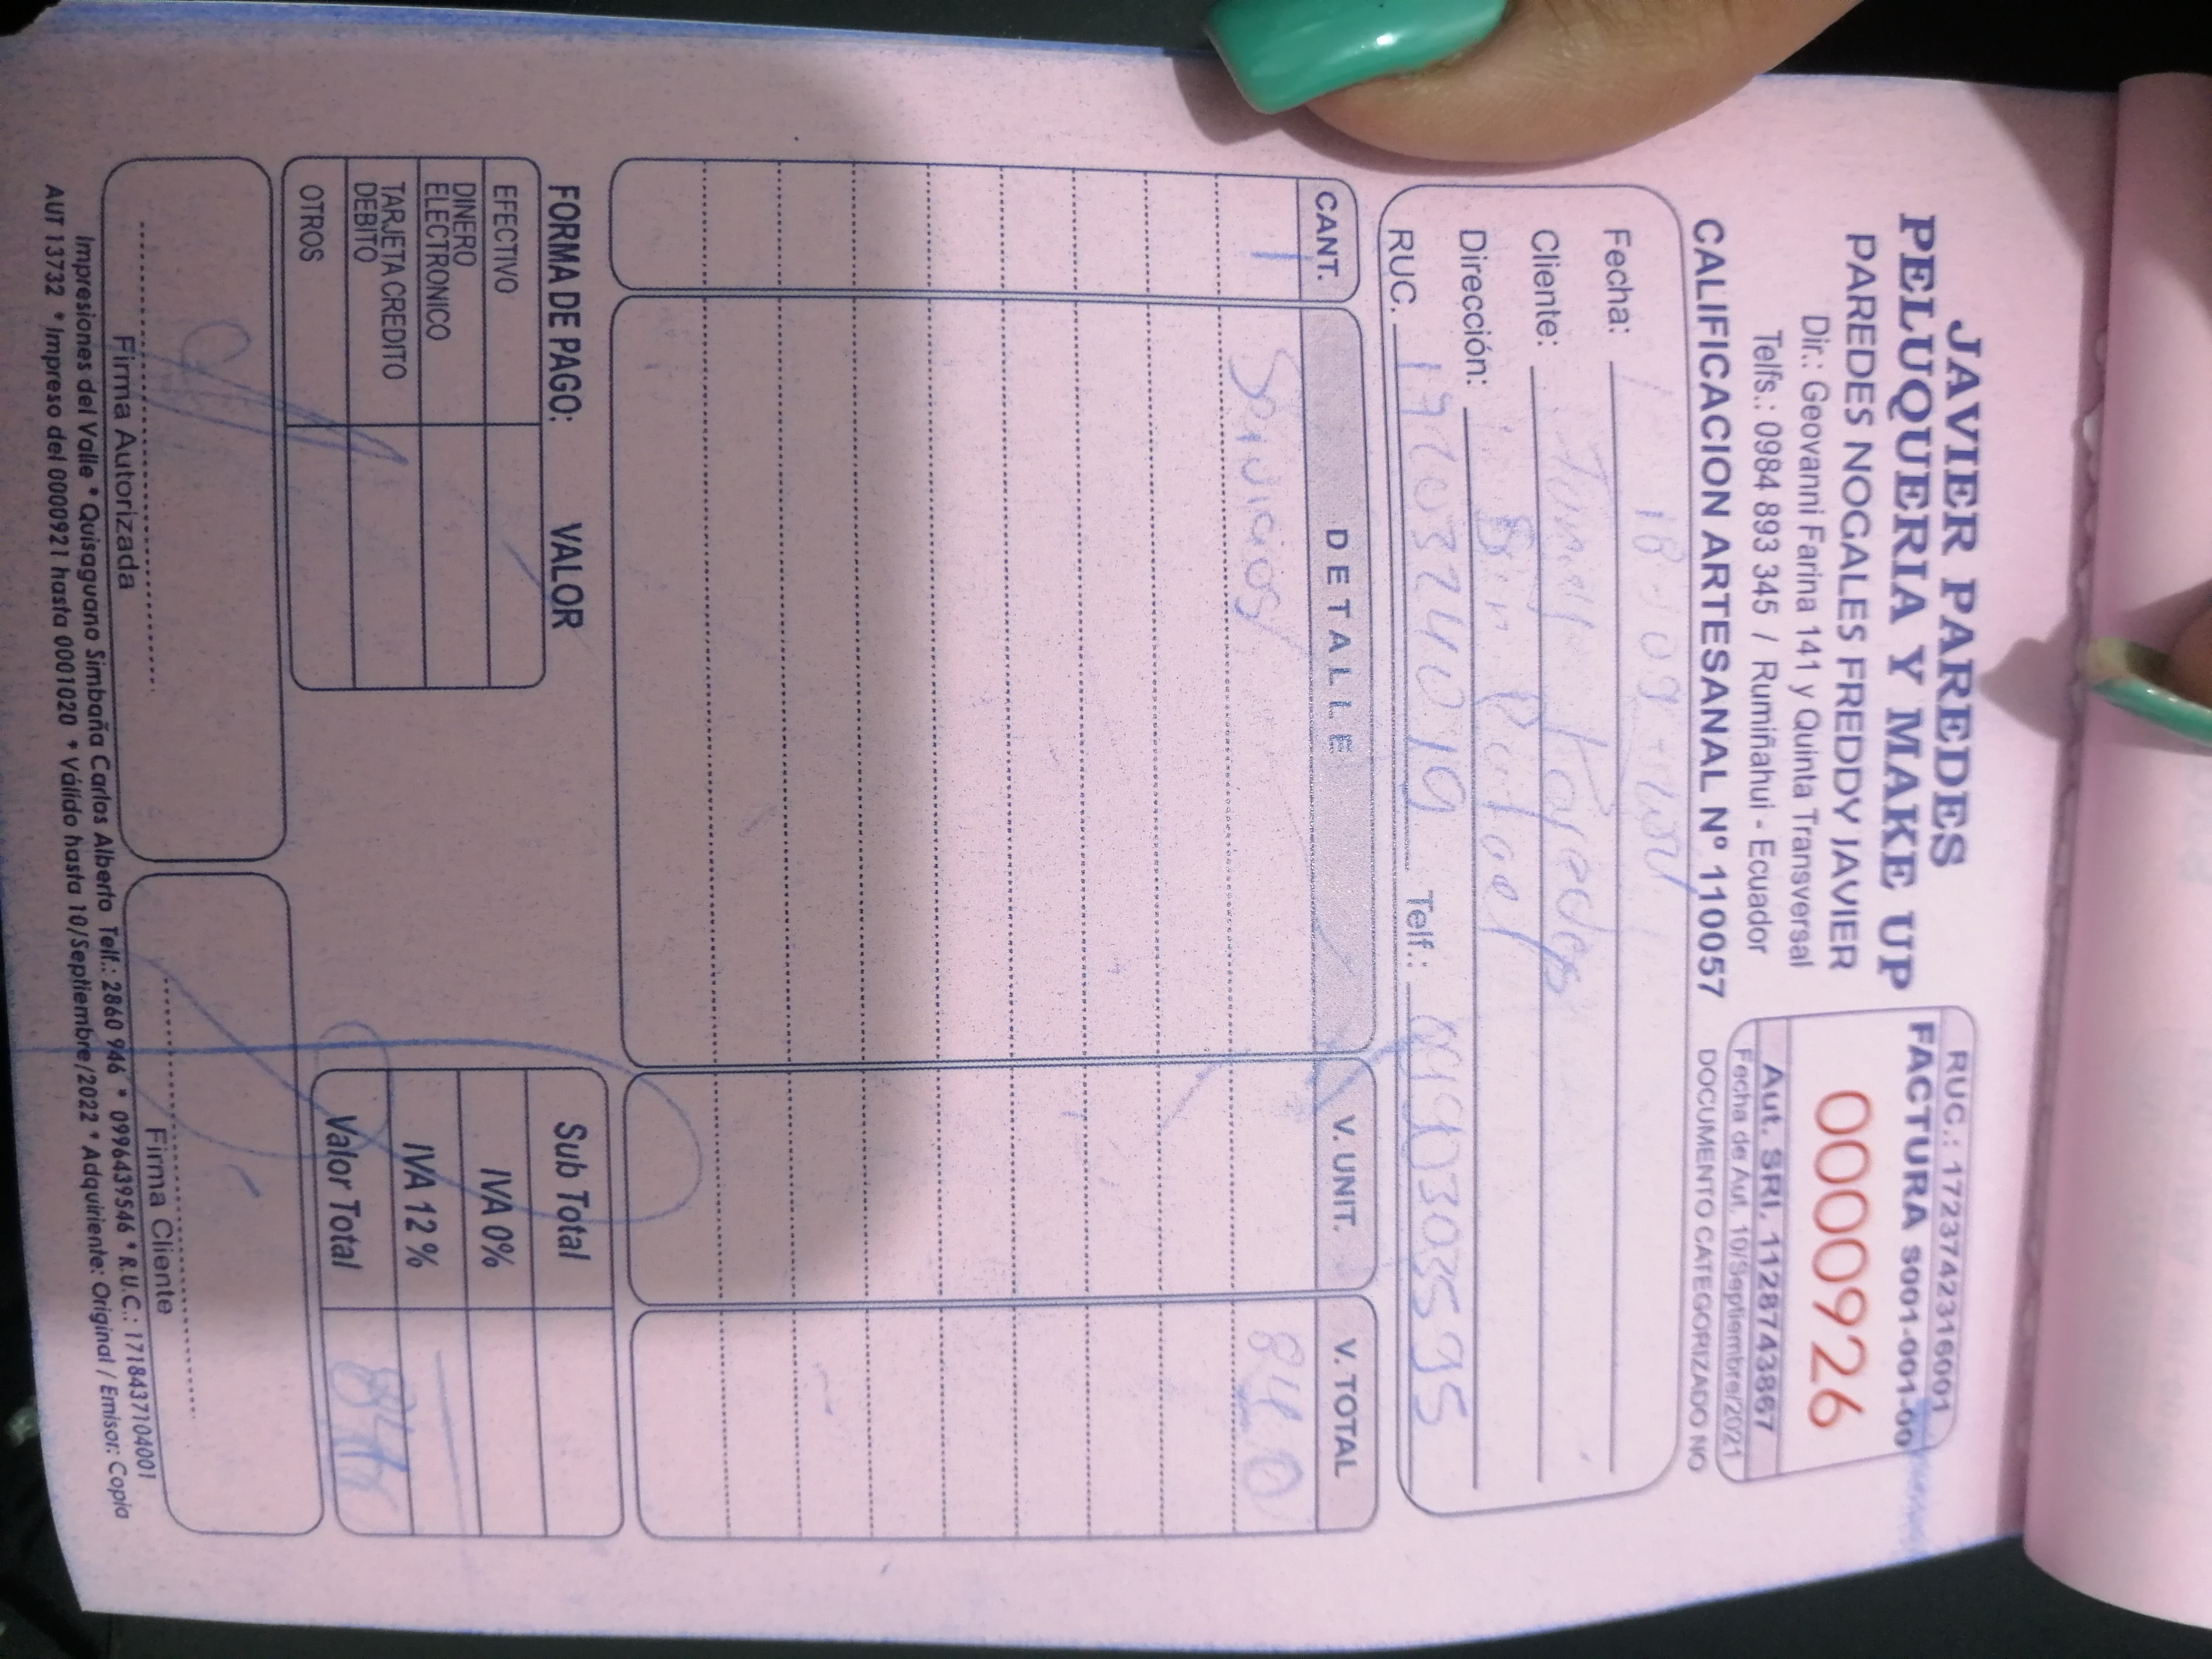 JAVIER PAREDES
PELUQUERIA Y MAKE UP
PAREDES NOGALES FREDDY JAVIER
Dir.: Geovanni Farina 141 y Quinta Transversal
Telfs.: 0984 893 345 / Rumiñahui - Ecuador
CALIFICACION ARTESANAL Nº 110057
RUC.: 1723742316001
FACTURA S001-001-00
0000926
Aut. SRI. 1128743867
Fecha de Aut. 10/Septiembre/2021
DOCUMENTO CATEGORIZADO NO
Fecha: 18-09-
Cliente: Paredes
Dirección:
RUC. Telf.:
CANT. DETALLE V. UNIT. V. TOTAL
1 Servicios
FORMA DE PAGO: VALOR
EFECTIVO
DINERO ELECTRONICO
TARJETA CREDITO DEBITO
OTROS
Sub Total
IVA 0%
IVA 12 %
Valor Total
Firma Autorizada
Firma Cliente
Impresiones del Valle * Quisaguano Simbaña Carlos Alberto Telf.: 2860 946 * 0996439546 * R.U.C.: 1718437104001
AUT 13732 * Impreso del 0000921 hasta 0001020 * Válido hasta 10/Septiembre/2022 * Adquiriente: Original / Emisor: Copia